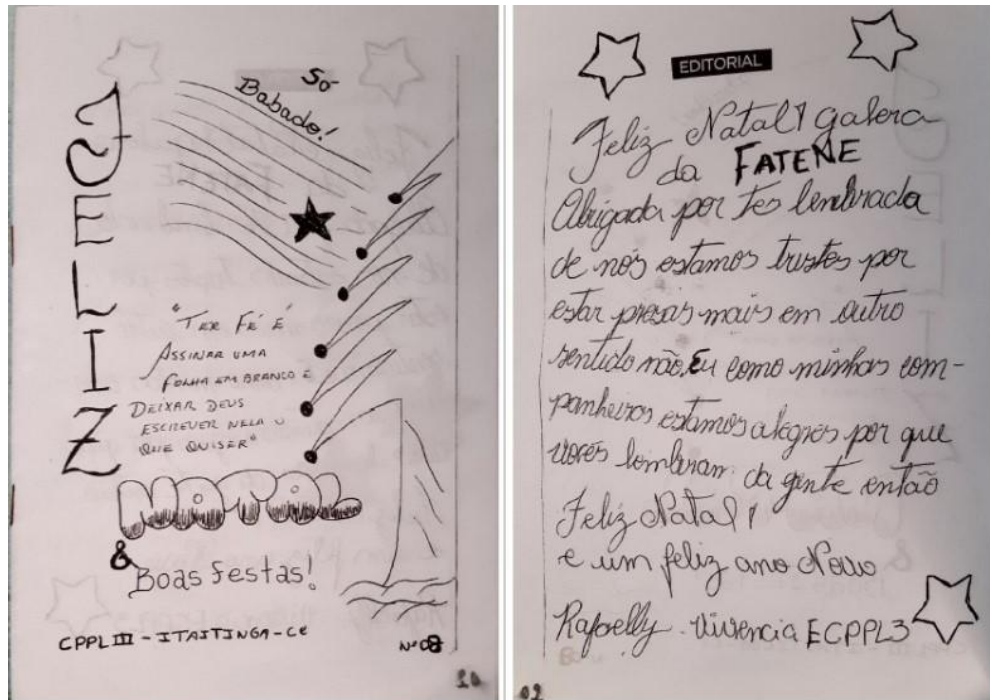 FELIZ
Só
Babado!
"TER FÉ É
ASSINAR UMA
FOLHA EM BRANCO E
DEIXAR DEUS
ESCREVER NELA O
QUE QUISER"
NATAL
&
Boas Festas!
CPPL III - ITAITINGA - CE
Nº 08
EDITORIAL
Feliz Natal! galera
da FATENE
Obrigada por ter lembrada
de nós estamos tristes por
estar presas mais em outro
sentido não, Eu como minhas com-
panheiras estamos alegres por que
vocês lembram da gente então
Feliz Natal!
e um feliz ano Novo
Rafaelly - Vivencia ECPPL3
02